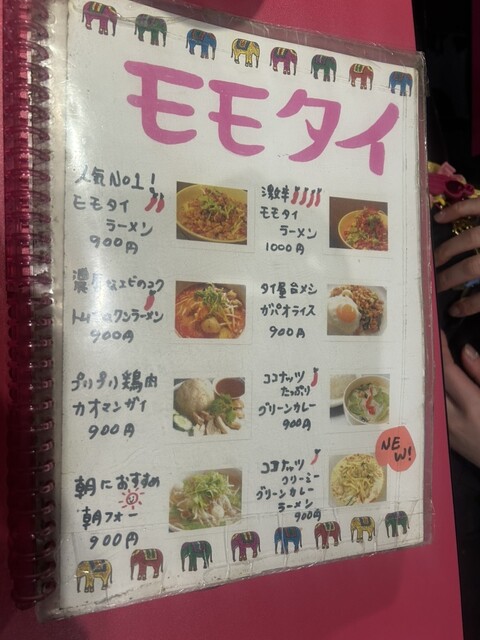 モモタイ
人気No1!
モモタイ
ラーメン
900円
激辛
モモタイ
ラーメン
1000円
濃厚なエビのコク
トムヤムクンラーメン
900円
タイ屋台メシ
ガパオライス
900円
プリプリ鶏肉
カオマンガイ
900円
ココナッツ
たっぷり
グリーンカレー
900円
朝におすすめ
朝フォー
900円
NEW!
ココナッツ
クリーミー
グリーンカレー
ラーメン
900円